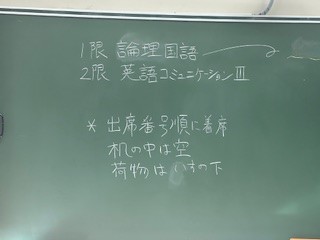 1限 論理国語
2限 英語コミュニケーションⅢ
* 出席番号順に着席
机の中は空
荷物はいすの下